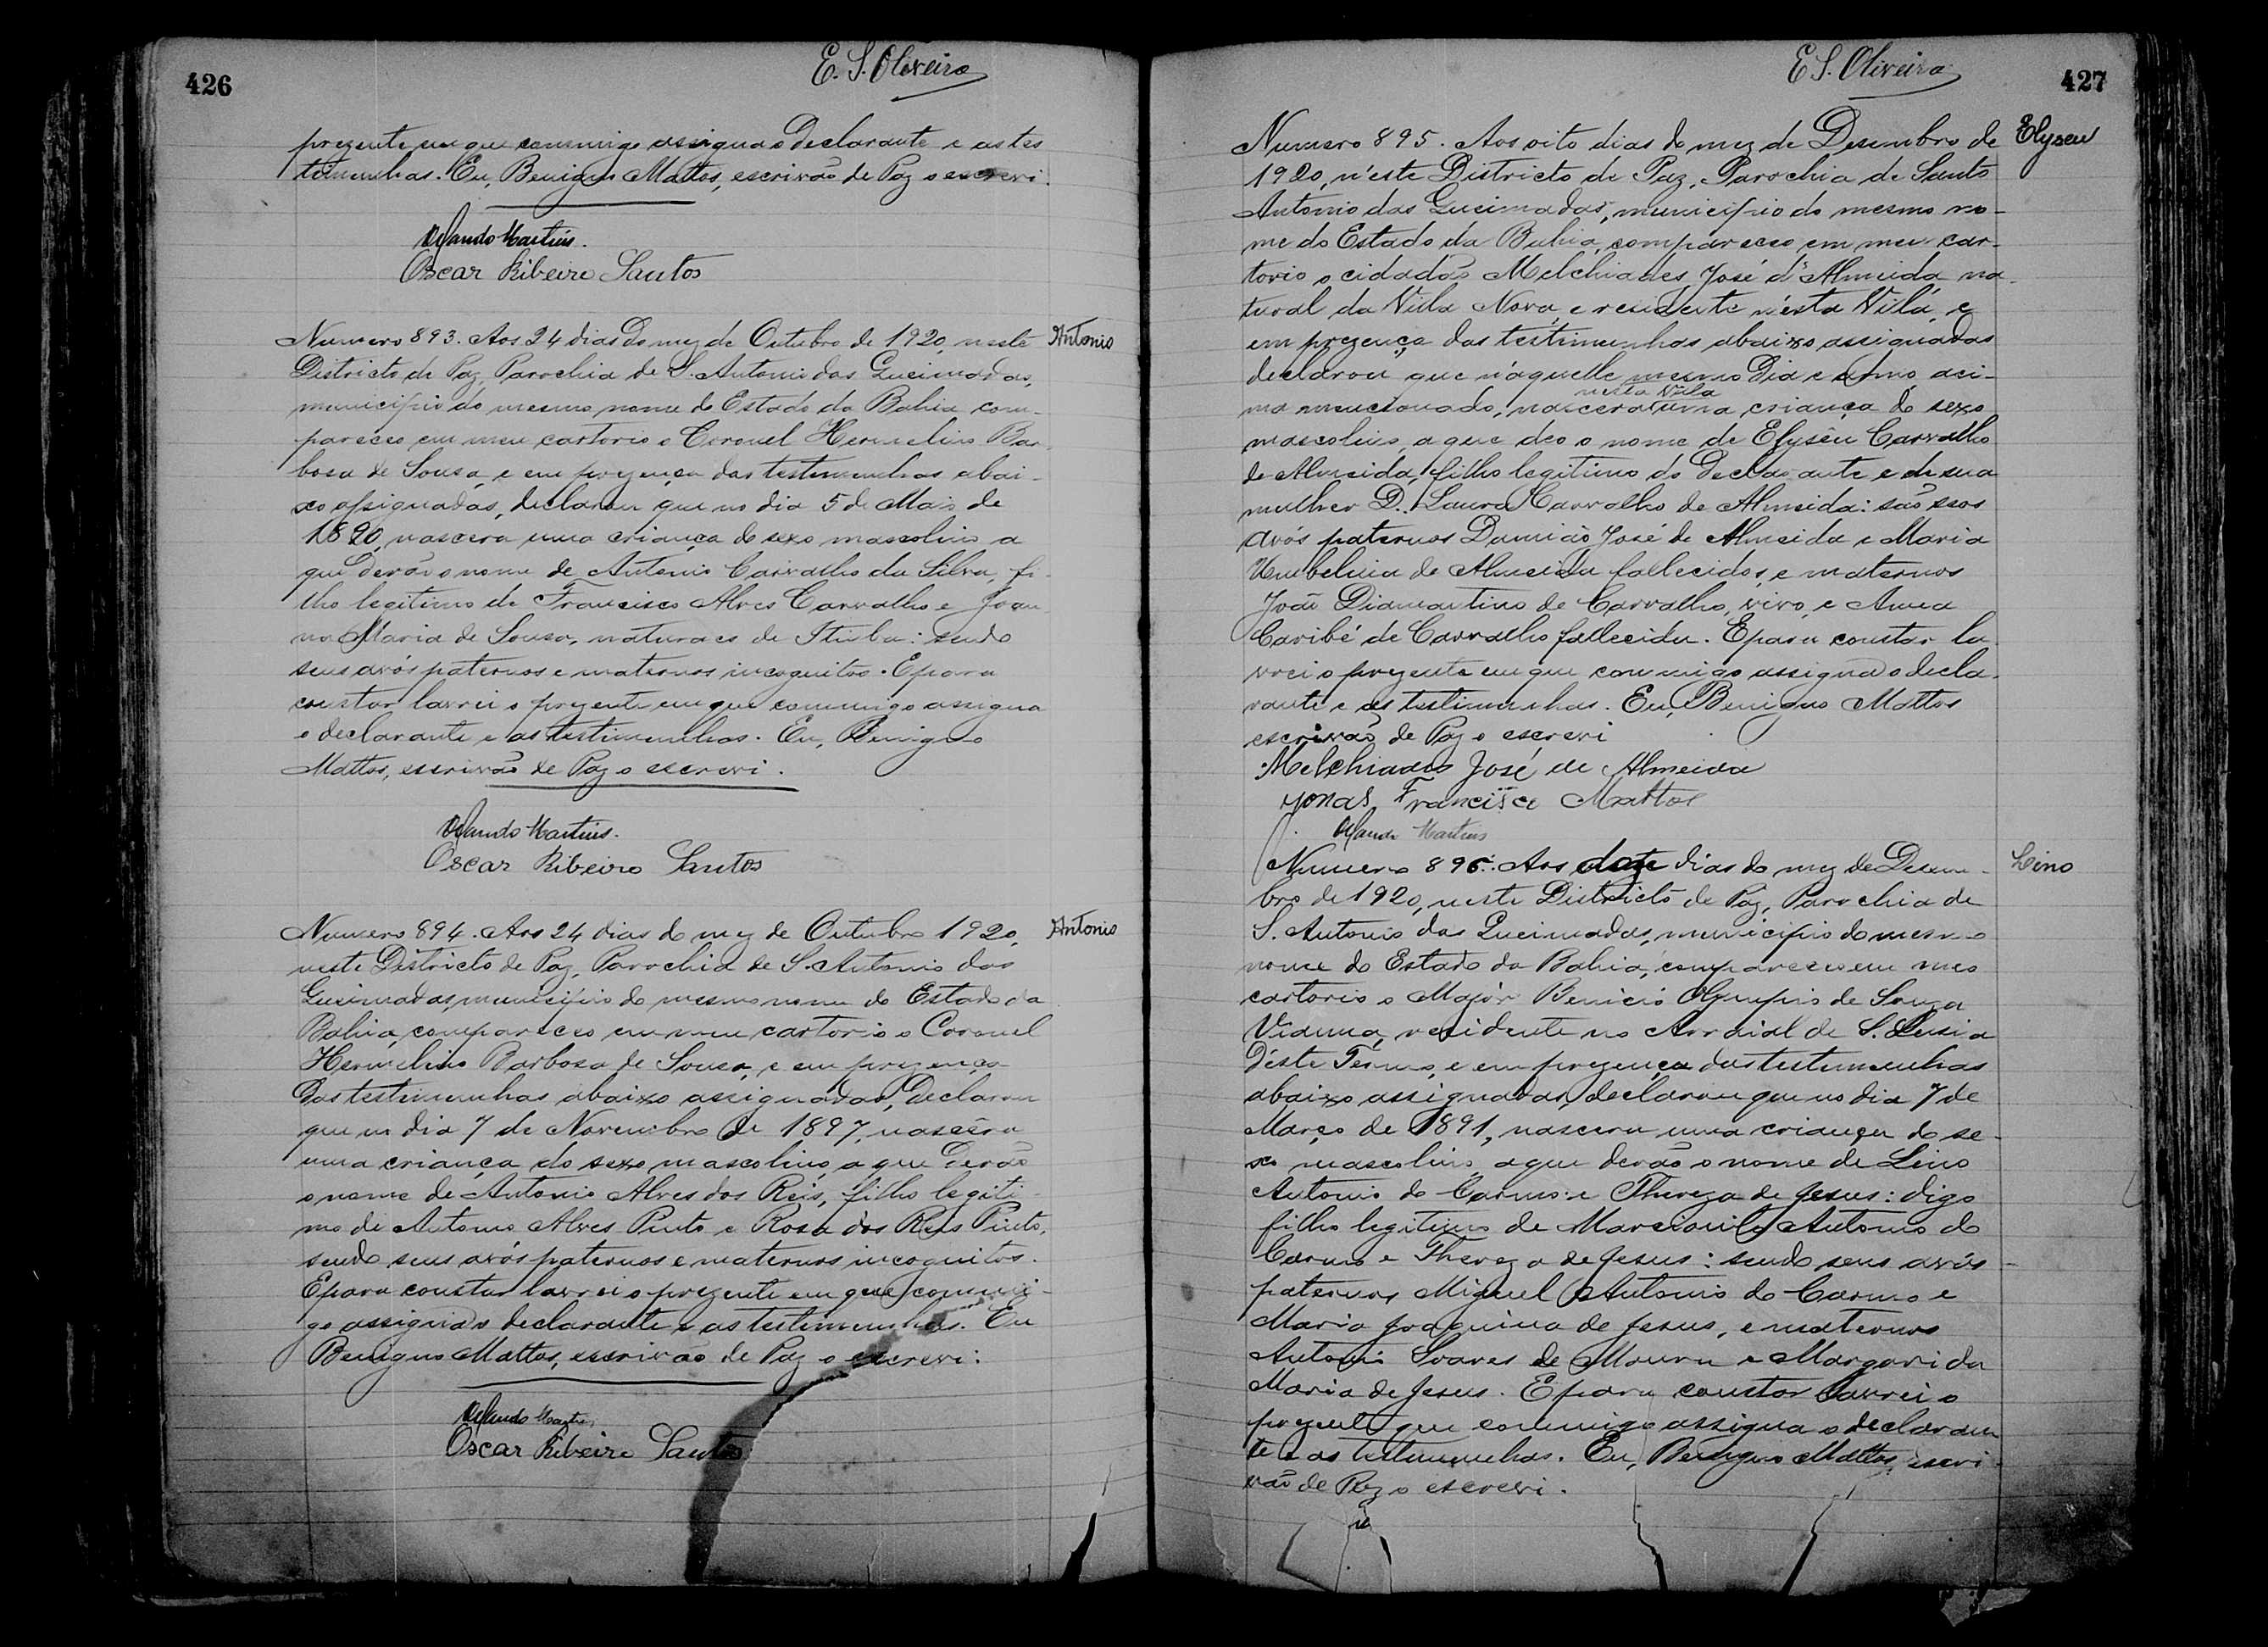 426
E. S. Oliveira
prezente em que commigo assigna o Declarante e as tes
timunhas. Eu, Benigno Mattos, escrivão de Paz o escrevi.
Martins.
Oscar Ribeiro Santos
Antonio
Numero 893. Aos 24 dias do mez de Outubro de 1920, neste
Districto de Paz, Parochia de S. Antonio das Queimadas,
municipio do mesmo nome do Estado da Bahia, com-
pareceo em meu cartorio o Coronel Hermelino Bar-
bosa de Sousa, e em prezença das testimunhas abai-
xo assignadas, declarou que no dia 5 de Maio de
1890, nascera uma criança do sexo mascolino a
que derão o nome de Antonio Carvalho da Silva, fi-
lho legitimo de Francisco Alves Carvalho e Joan
na Maria de Sousa, naturaes de Itiuba: sendo
seus avós paternos e maternos incognitos. E para
constar lavrei o prezente em que commigo assigna
o declarante e as testimunhas. Eu, Benigno
Mattos, escrivão de Paz o escrevi.
Martins.
Oscar Ribeiro Santos
Antonio
Numero 894. Aos 24 dias do mez de Outubro 1920,
neste Districto de Paz, Parochia de S. Antonio das
Queimadas, municipio do mesmo nome do Estado da
Bahia, compareceo em meu cartorio o Coronel
Hermelino Barbosa de Sousa, e em prezença
das testimunhas abaixo assignadas, Declarou
que no dia 7 de Novembro de 1897, nascêra
uma criança do sexo mascolino, a que derão
o nome de Antonio Alves dos Reis, filho legiti-
mo de Antonio Alves Pinto e Rosa dos Reis Pinto,
sendo seus avós paternos e maternos incognitos.
E para constar lavrei o prezente em que commi-
go assigna o declarante e as testimunhas. Eu
Benigno Mattos, escrivão de Paz o escrevi.
Martins
Oscar Ribeiro Santos
E S. Oliveira
427
Elyseu
Numero 895. Aos oito dias do mez de Desembro de
1920, n'este Districto de Paz, Parochia de Santo
Antonio das Queimadas, municipio do mesmo no-
me do Estado da Bahia, compareceo em meu car-
torio o cidadão Melchiades José d'Almeida na-
tural da Villa Nova, e residente n'esta Villa, e
em prezença das testimunhas abaixo assignadas
declarou que n'aquelle mesmo Dia e Anno, aci-
nesta Villa
ma mencionado, nascera uma criança do sexo
mascolino, a que deo o nome de Elyséu Carvalho
de Almeida, filho legitimo do Declarante e de sua
mulher D. Laura Carvalho de Almeida: são seos
avós paternos Damião José de Almeida e Maria
Umbelina de Almeida fallecidos, e maternos
João Diamantino de Carvalho, vivo, e Anna
Caribé de Carvalho fallecida. E para constar la
vrei o prezente em que commigo assigna o decla-
rante e as testimunhas. Eu, Benigno Mattos
escrivão de Paz o escrevi
Melchiades José de Almeida
Jonas Francisco Mattos
Martins
Lino
Numero 896. Aos doze dias do mez de Desem-
bro de 1920, neste Districto de Paz, Parochia de
S. Antonio das Queimadas, municipio do mesmo
nome do Estado da Bahia, compareceo em meo
cartorio o Majór Benicio Olympio de Souza
Vianna, residente no Arraial de S. Lusia
d'este Termo, e em prezença das testimunhas
abaixo assignadas, declarou que no dia 7 de
Março de 1891, nascera uma criança do se-
xo mascolino, a que derão o nome de Lino
Antonio do Carmo: e Thereza de Jesus: digo
filho legitimo de Antonio do
Carmo e Thereza de Jesus: sendo seus avós
paternos Miguel Antonio do Carmo e
Maria Joaquina de Jesus, e maternos
Antonio Soares de Moura e Margarida
Maria de Jesus. E para constar lavrei o
prezente que commigo assigna o declaran
te e as testimunhas. Eu, Benigno Mattos, escri-
vão de Paz o escrevi.